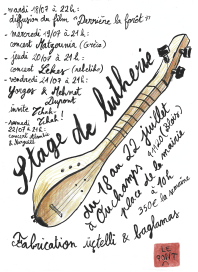 - mardi 18/07 à 22h :
diffusion du film "Derrière la forêt"
- mercredi 19/07 à 21h :
concert Matzounia (Grèce)
- jeudi 20/07 à 21h :
concert Lekes (rebetiko)
- vendredi 21/07 à 21h :
Yorgos & Mehmet
Dupont
invite Tchak-
Tchak !
- samedi
22/07 à 21h :
concert
Stage de lutherie
du 18 au 22 juillet
à Ouchamps (Blois)
place de la mairie
à 10h
350€ la semaine
Fabrication üçtelli & baglamas
LE
PONT